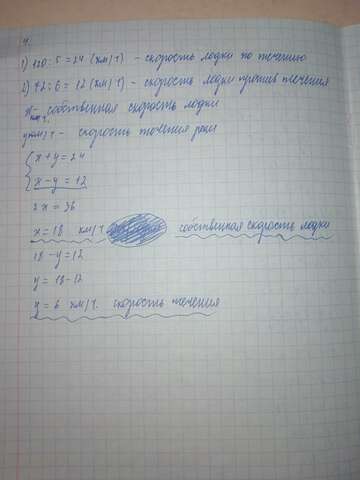 4.
1) 120 : 5 = 24 (км/ч) - скорость лодки по течению
2) 72 : 6 = 12 (км/ч) - скорость лодки против течения
x км/ч - собственная скорость лодки
y км/ч - скорость течения реки
x + y = 24
x - y = 12
2x = 36
x = 18 км/ч. собственная скорость лодки
18 - y = 12
y = 18 - 12
y = 6 км/ч. скорость течения